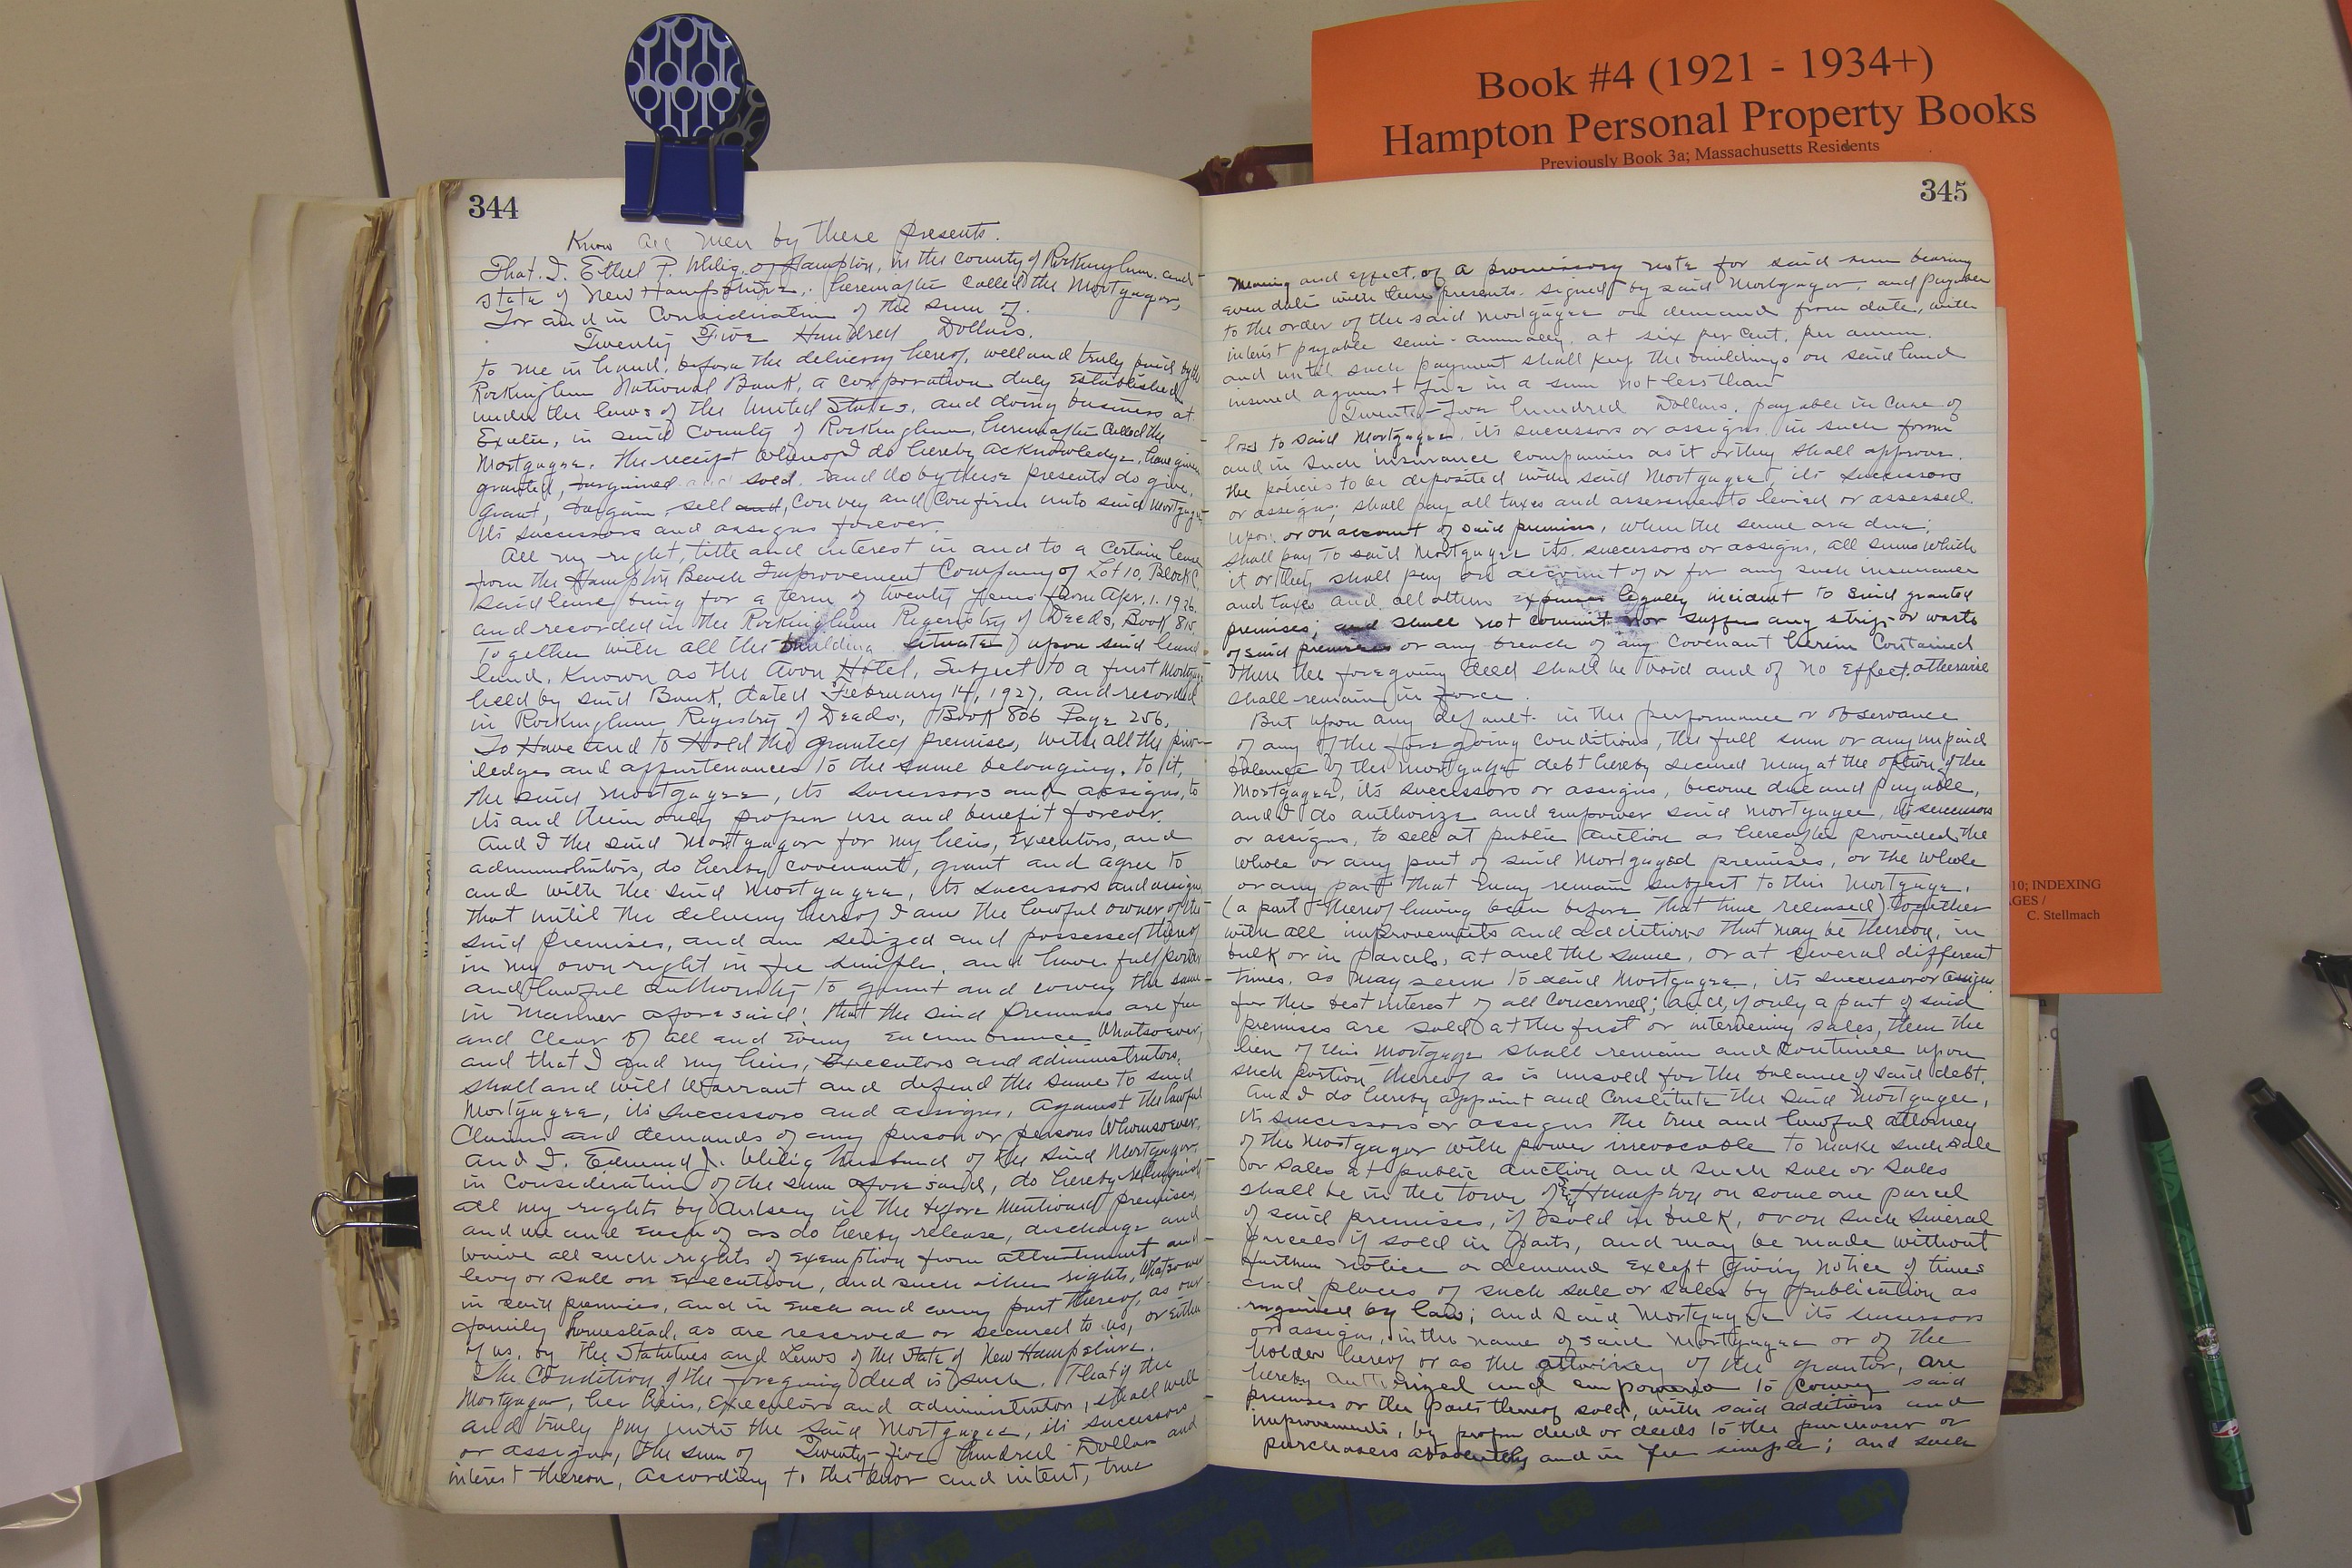 Book #4 (1921 - 1934+)
Hampton Personal Property Books
Previously Book 3a; Massachusetts Residents
10; INDEXING
AGES /
C. Stellmach
344
Know all Men by these presents.
That. I. Ethel P. of Hampton, in the county of Rockingham and
state of New Hampshire, hereinafter called the Mortgagor,
For and in Consideration of the sum of.
Twenty Five Hundred Dollars.
to me in hand, before the delivery hereof, well and truly paid by the
Rockingham National Bank, a corporation duly Established
under the laws of the United States, and doing business at
Exeter, in said County of Rockingham, hereinafter Called the
Mortgagee, the receipt whereof I do hereby acknowledge, have given
granted, bargained and sold, and do by these presents do give,
grant, bargain, sell and, Convey and Confirm unto said Mortgagee
its successors and assigns forever.
All my right, title and interest in and to a Certain lease
from the Hampton Beach Improvement Company of Lot 10, Block C
said lease being for a term of twenty years from Apr. 1. 1926.
and recorded in the Rockingham Registry of Deeds, Book 810
Together with all the building situated upon said leased
land, Known as the Avon Hotel, Subject to a first Mortgage
held by said Bank, dated February 14, 1927, and recorded
in Rockingham Registry of Deeds, Book 806 Page 256.
To Have and to Hold the granted premises, with all the priv-
iledges and appurtenances to the same belonging. to it,
the said Mortgagee, its successors and assigns, to
its and their only proper use and benefit forever.
And I the said Mortgagor for my heirs, Executors, and
administrators, do hereby covenant, grant and agree to
and with the said Mortgagee, its successors and assigns
that until the delivery hereof I am the lawful owner of the
said premises, and am seized and possessed thereof
in my own right in fee simple, and have full power
and lawful authority to grant and convey the same
in Manner aforesaid; that the said premises are free
and Clear of all and Every Encumbrance Whatsoever;
and that I and my heirs, Executors and administrators,
shall and will Warrant and defend the same to said
Mortgagee, its successors and assigns, against the lawful
Claims and demands of any person or persons Whomsoever.
And I, Edmund J. husband of the said Mortgagor,
in Consideration of the sum aforesaid, do hereby relinquish
all my rights by Curtsey in the before Mentioned premises,
and we and Each of us do hereby release, discharge and
waive all such rights of Exemption from attachment and
levy or Sale on Execution, and such other rights, Whatsoever
in said premises, and in Each and every part thereof, as our
family homestead, as are reserved or secured to us, or Either
of us, by the Statutes and Laws of the State of New Hampshire.
The Condition of the foregoing deed is such, That if the
Mortgagor, her heirs, Executors and administrators, shall well
and truly pay unto the said Mortgagee, its successors
or assigns, the sum of Twenty-five Hundred Dollars and
interest thereon, according to the tenor and intent, true
345
Meaning and effect, of a promissory note for said sum bearing
even date with these presents. signed by said Mortgagor, and payable
to the order of the said Mortgagee on demand from date, with
interest payable semi-annually, at six per cent. per annum.
and until such payment shall keep the buildings on said land
insured against fire in a sum not less than
Twenty-Five hundred Dollars, payable in Case of
loss to said Mortgagee, its successors or assigns in such form
and in Such insurance companies as it or they shall approve.
the policies to be deposited with said Mortgagee, its successors
or assigns, shall pay all taxes and assessments levied or assessed.
upon or on account of said premises, when the same are due;
shall pay to said Mortgagee its successors or assigns, all sums which
it or they shall pay on account of or for any such insurance
and taxes and all others expenses legally incident to said granted
premises; and shall not commit nor suffer any strip or waste
of said premises or any breach of any Covenant herein Contained
then the foregoing deed shall be void and of no Effect. otherwise
shall remain in force.
But upon any default in the performance or observance
of any of the foregoing conditions, the full sum or any unpaid
balance of the Mortgage debt hereby secured may at the option of the
Mortgagee, its successors or assigns, become due and payable,
and I do authorize and empower said Mortgagee, its successors
or assigns, to sell at public auction as hereafter provided the
whole or any part of said Mortgaged premises, or the whole
or any part that may remain subject to this Mortgage,
(a part thereof having been before that time released) together
with all improvements and additions that may be thereon, in
bulk or in parcels, at and the same, or at several different
times, as may seem to said Mortgagee, its successor or assigns
for the best interest of all Concerned; and, if only a part of said
premises are sold at the first or intervening sales, then the
lien of this Mortgage shall remain and continue upon
such portion thereof as is unsold for the balance of said debt.
And I do hereby appoint and Constitute the said Mortgagee,
its successors or assigns the true and lawful attorney
of the Mortgagor with power irrevocable to make such sale
or sales at public auction and such sale or sales
shall be in the town of Hampton on some one parcel
of said premises, if sold in bulk, or on such several
parcels if sold in parts, and may be made without
further notice or demand except giving notice of times
and places of such sale or sales by publication as
required by law; and said Mortgagee its successors
or assigns, in the name of said Mortgagee or of the
holder hereof or as the attorney of the grantor, are
hereby authorized and empowered to convey said
premises or the parts thereof sold, with said additions and
improvements, by proper deed or deeds to the purchaser or
purchasers absolutely and in fee simple; and such